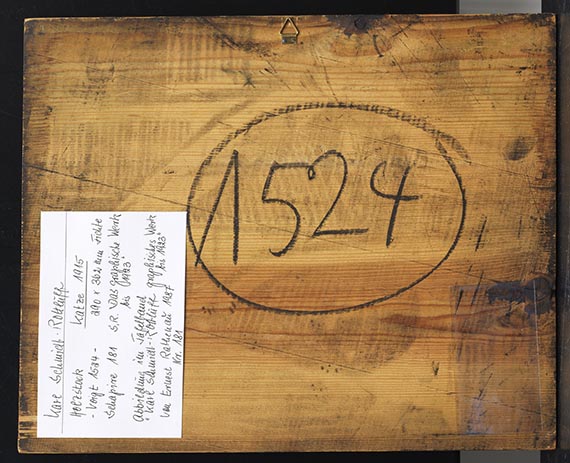 1524
Karl Schmidt-Rottluff
Holzstock Katze 1915
- Vogt 1524 - 390 x 302 mm
Schapire 181 S.R. Das graphische Werk
bis 1923"
Abbildung im Tafelband
"Karl Schmidt-Rottluff graphisches Werk
bis 1923"
von Ernest Rathenau 1987
Nr. 181